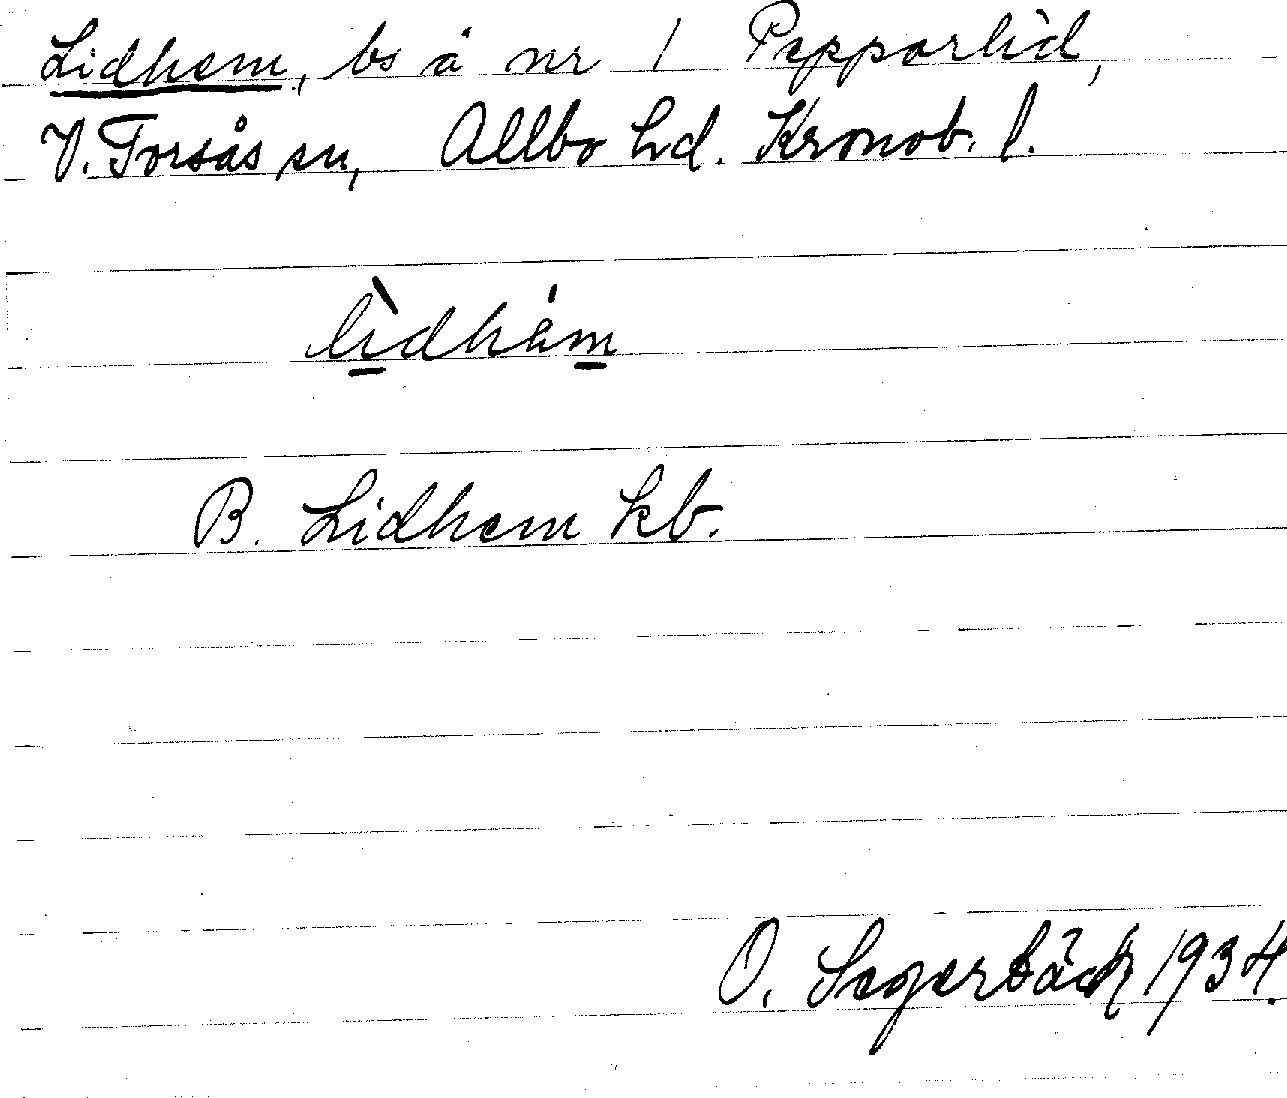 Lidhem, bs å nr 1 Pepparlid,
V. Torsås sn, Allbo hd. Kronob. l.
lìdhám
B. Lidhem kb.
O. Segerbäck 1934.